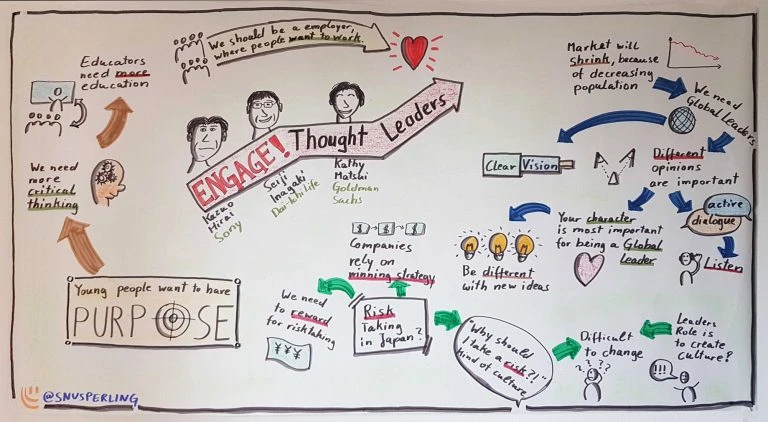 We should be a employer,
where people want to work.
Educators
need more
education
Market will
shrink, because
of decreasing
population
We need
Global Leaders
ENGAGE! Thought Leaders
Kazuo
Hirai
Sony
Seiji
Inagaki
Dai-Ichi Life
Kathy
Matski
Goldman
Sachs
Clear Vision
Different
opinions
are important
We need
more
critical
thinking
active
dialogue
Your character
is most important
for being a Global
Leader
Listen
$ $ $
Companies
rely on
winning strategy
Be different
with new ideas
Young people want to have
PURPOSE
We need
to reward
for risktaking
¥¥¥
Risk
Taking
in Japan?
"Why should
I take a risk?!"
kind of culture
Difficult
to change
????
Leaders
Role is
to create
culture?
!!!
@SNUSPERLING